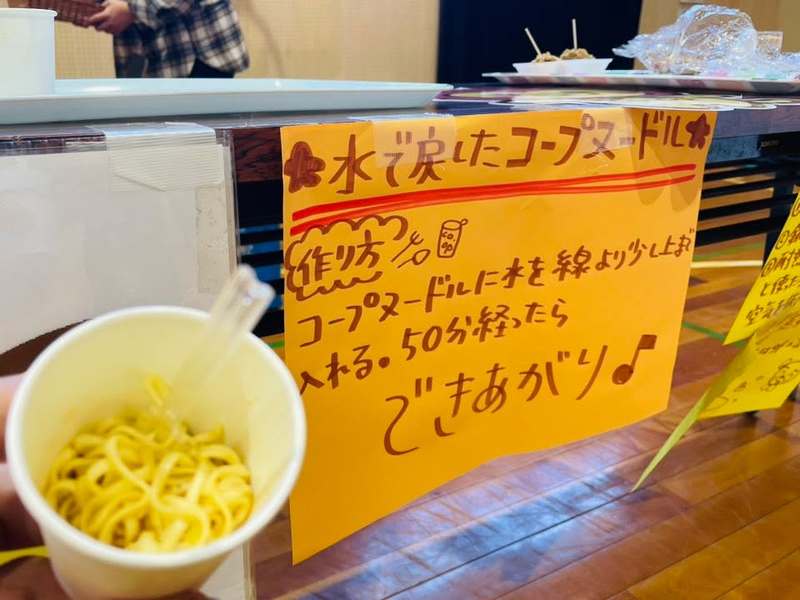 水で戻したコープヌードル
作り方
co
op
コープヌードルに水を線より少し上まで
入れる。50分経ったら
できあがり♪